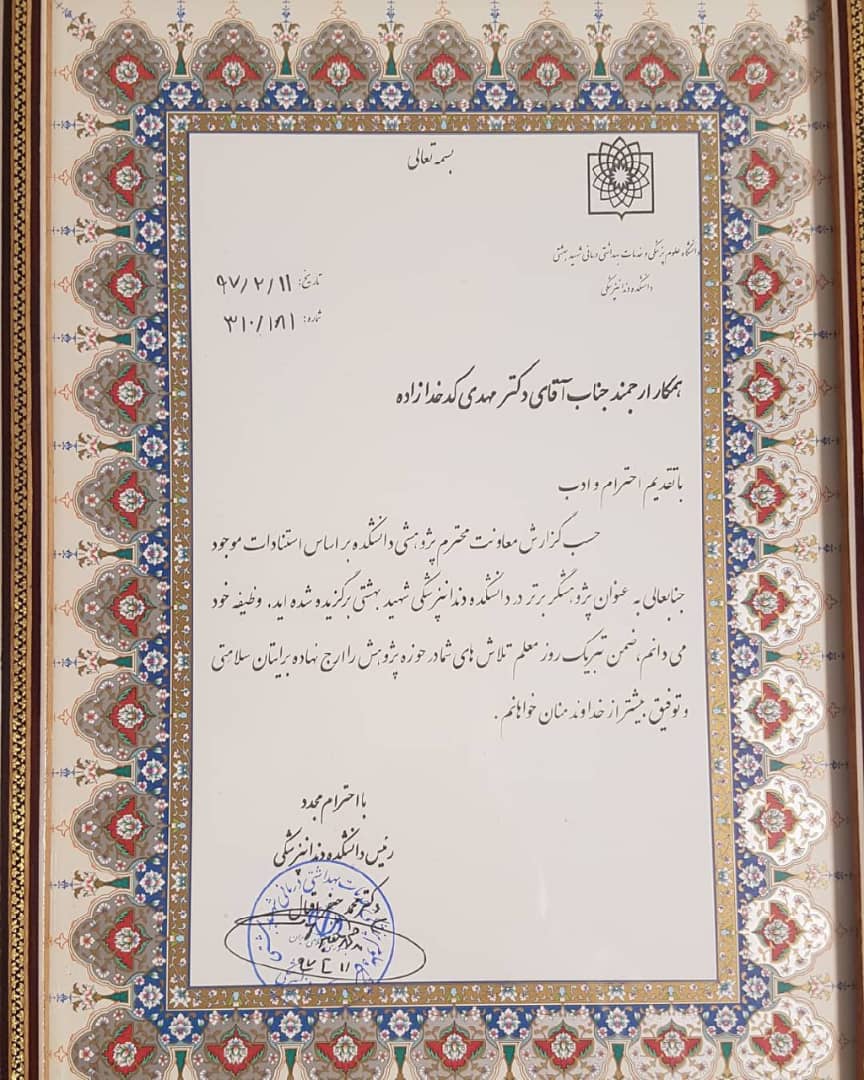 بسمه تعالی
دانشگاه علوم پزشکی و خدمات بهداشتی درمانی شهید بهشتی
دانشکده دندانپزشکی
تاریخ: ۹۷/۲/۱۱
شماره: ۳۱۰/۱۸۱
همکار ارجمند جناب آقای دکتر مهدی کدخدازاده
با تقدیم احترام و ادب
حسب گزارش معاونت محترم پژوهشی دانشکده بر اساس استنادات موجود
جنابعالی به عنوان پژوهشگر برتر در دانشکده دندانپزشکی شهید بهشتی برگزیده شده اید. وظیفه خود
می دانم، ضمن تبریک روز معلم تلاش های شما در حوزه پژوهش را ارج نهاده برایتان سلامتی
و توفیق بیشتر از خداوند منان خواهانم.
با احترام مجدد
رئیس دانشکده دندانپزشکی
دکتر محمد